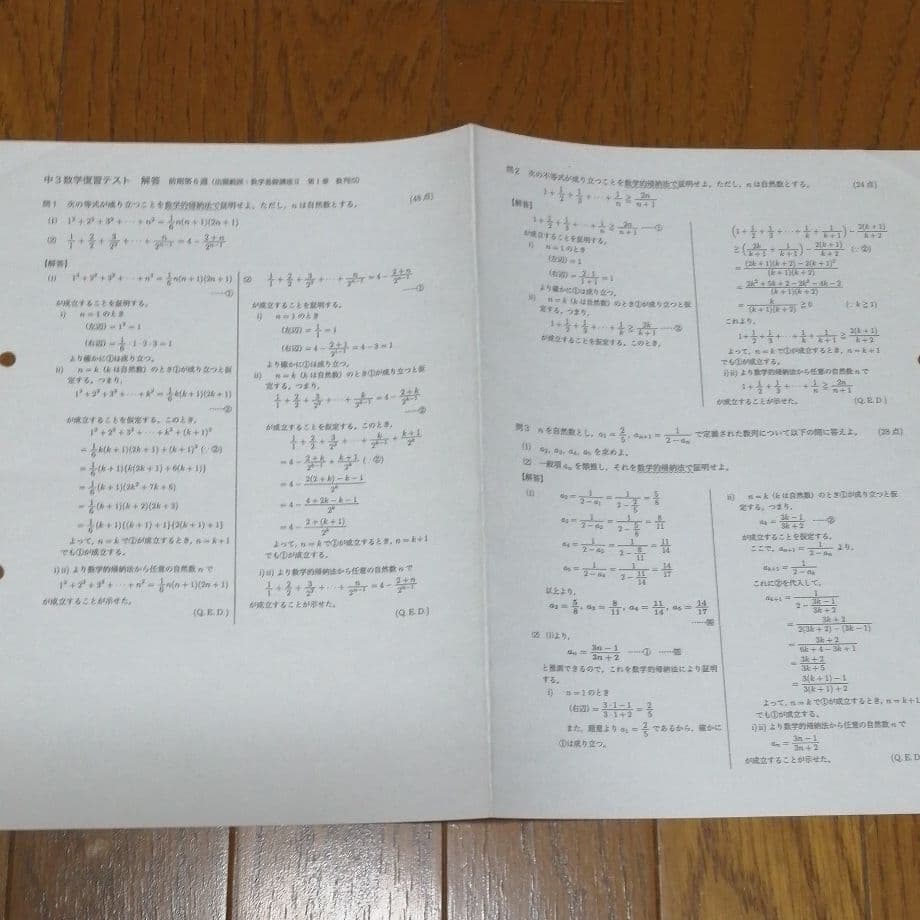 中3数学復習テスト 解答 前期第6週 (出題範囲:数学基幹講座II 第1章 数列(5))
問1 次の等式が成り立つことを数学的帰納法で証明せよ。ただし,nは自然数とする。 (48点)
(1) 1²+2²+3²+⋯+n²=1/6 n(n+1)(2n+1)
(2) 1/1+2/2+3/2²+⋯+n/2ⁿ⁻¹=4−(2+n)/2ⁿ⁻¹
【解答】
(1) 1²+2²+3²+⋯+n²=1/6 n(n+1)(2n+1)
⋯⋯①
が成立することを証明する。
i) n=1のとき
(左辺)=1²=1
(右辺)=1/6・1・2・3=1
より確かに①は成り立つ。
ii) n=k (kは自然数) のとき①が成立つと仮
定する。つまり,
1²+2²+3²+⋯+k²=1/6 k(k+1)(2k+1)
⋯⋯②
が成立することを仮定する。このとき,
1²+2²+3²+⋯+k²+(k+1)²
=1/6 k(k+1)(2k+1)+(k+1)² (∵②)
=1/6 (k+1){k(2k+1)+6(k+1)}
=1/6 (k+1)(2k²+7k+6)
=1/6 (k+1)(k+2)(2k+3)
=1/6 (k+1){(k+1)+1}{2(k+1)+1}
よって,n=kで①が成立するとき,n=k+1
でも①が成立する。
i)ii)より数学的帰納法から任意の自然数nで
1²+2²+3²+⋯+n²=1/6 n(n+1)(2n+1)
が成立することが示せた。
(Q.E.D.)
(2) 1/1+2/2+3/2²+⋯+n/2ⁿ⁻¹=4−(2+n)/2ⁿ⁻¹
⋯⋯①
が成立することを証明する。
i) n=1のとき
(左辺)=1/1=1
(右辺)=4−(2+1)/2¹⁻¹=4−3=1
より確かに①は成り立つ。
ii) n=k (kは自然数) のとき①が成立つと仮
定する。つまり,
1/1+2/2+3/2²+⋯+k/2ᵏ⁻¹=4−(2+k)/2ᵏ⁻¹
⋯⋯②
が成立することを仮定する。このとき,
1/1+2/2+3/2²+⋯+k/2ᵏ⁻¹+(k+1)/2ᵏ
=4−(2+k)/2ᵏ⁻¹+(k+1)/2ᵏ (∵②)
=4−(2(2+k)−k−1)/2ᵏ
=4−(4+2k−k−1)/2ᵏ
=4−(2+(k+1))/2ᵏ
よって,n=kで①が成立するとき,n=k+1
でも①が成立する。
i)ii)より数学的帰納法から任意の自然数nで
1/1+2/2+3/2²+⋯+n/2ⁿ⁻¹=4−(2+n)/2ⁿ⁻¹
が成立することが示せた。
(Q.E.D.)
問2 次の不等式が成り立つことを数学的帰納法で証明せよ。ただし,nは自然数とする。 (24点)
1+1/2+1/3+⋯+1/n≧2n/(n+1)
【解答】
1+1/2+1/3+⋯+1/n≧2n/(n+1) ⋯⋯①
が成立することを証明する。
i) n=1のとき
(左辺)=1
(右辺)=2・1/(1+1)=1
より確かに①は成り立つ。
ii) n=k (kは自然数) のとき①が成立つと仮
定する。つまり,
1+1/2+1/3+⋯+1/k≧2k/(k+1) ⋯⋯②
が成立することを仮定する。このとき,
(1+1/2+1/3+⋯+1/k+1/(k+1))−2(k+1)/(k+2)
≧(2k/(k+1)+1/(k+1))−2(k+1)/(k+2) (∵②)
=((2k+1)(k+2)−2(k+1)²)/((k+1)(k+2))
=(2k²+5k+2−2k²−4k−2)/((k+1)(k+2))
=k/((k+1)(k+2))≧0 (∵k≧1)
これより,
1+1/2+1/3+⋯+1/k+1/(k+1)≧2(k+1)/(k+2)
よって,n=kで①が成立するとき,n=k+1
でも①が成立する。
i)ii)より数学的帰納法から任意の自然数nで
1+1/2+1/3+⋯+1/n≧2n/(n+1)
が成立することが示せた。 (Q.E.D.)
問3 nを自然数とし,a₁=2/5,aₙ₊₁=1/(2−aₙ) で定義された数列について以下の問に答えよ。 (28点)
(1) a₂, a₃, a₄, a₅ を求めよ。
(2) 一般項aₙを類推し,それを数学的帰納法で証明せよ。
【解答】
(1) a₂=1/(2−a₁)=1/(2−2/5)=5/8
a₃=1/(2−a₂)=1/(2−5/8)=8/11
a₄=1/(2−a₃)=1/(2−8/11)=11/14
a₅=1/(2−a₄)=1/(2−11/14)=14/17
以上より,
a₂=5/8, a₃=8/11, a₄=11/14, a₅=14/17
⋯⋯㊎
(2) (1)より,
aₙ=(3n−1)/(3n+2) ⋯⋯① ⋯⋯㊎
と推測できるので,これを数学的帰納法により証明
する。
i) n=1のとき
(右辺)=(3・1−1)/(3・1+2)=2/5
また,題意より a₁=2/5 であるから,確かに
①は成り立つ。
ii) n=k (kは自然数) のとき①が成立つと仮
定する。つまり,
aₖ=(3k−1)/(3k+2) ⋯⋯②
が成立することを仮定する。
ここで,aₙ₊₁=1/(2−aₙ) より,
aₖ₊₁=1/(2−aₖ)
これに②を代入して,
aₖ₊₁=1/(2−(3k−1)/(3k+2))
=(3k+2)/(2(3k+2)−(3k−1))
=(3k+2)/(6k+4−3k+1)
=(3k+2)/(3k+5)
=(3(k+1)−1)/(3(k+1)+2)
よって,n=kで①が成立するとき,n=k+1
でも①が成立する。
i)ii)より数学的帰納法から任意の自然数nで
aₙ=(3n−1)/(3n+2)
が成立することが示せた。 (Q.E.D